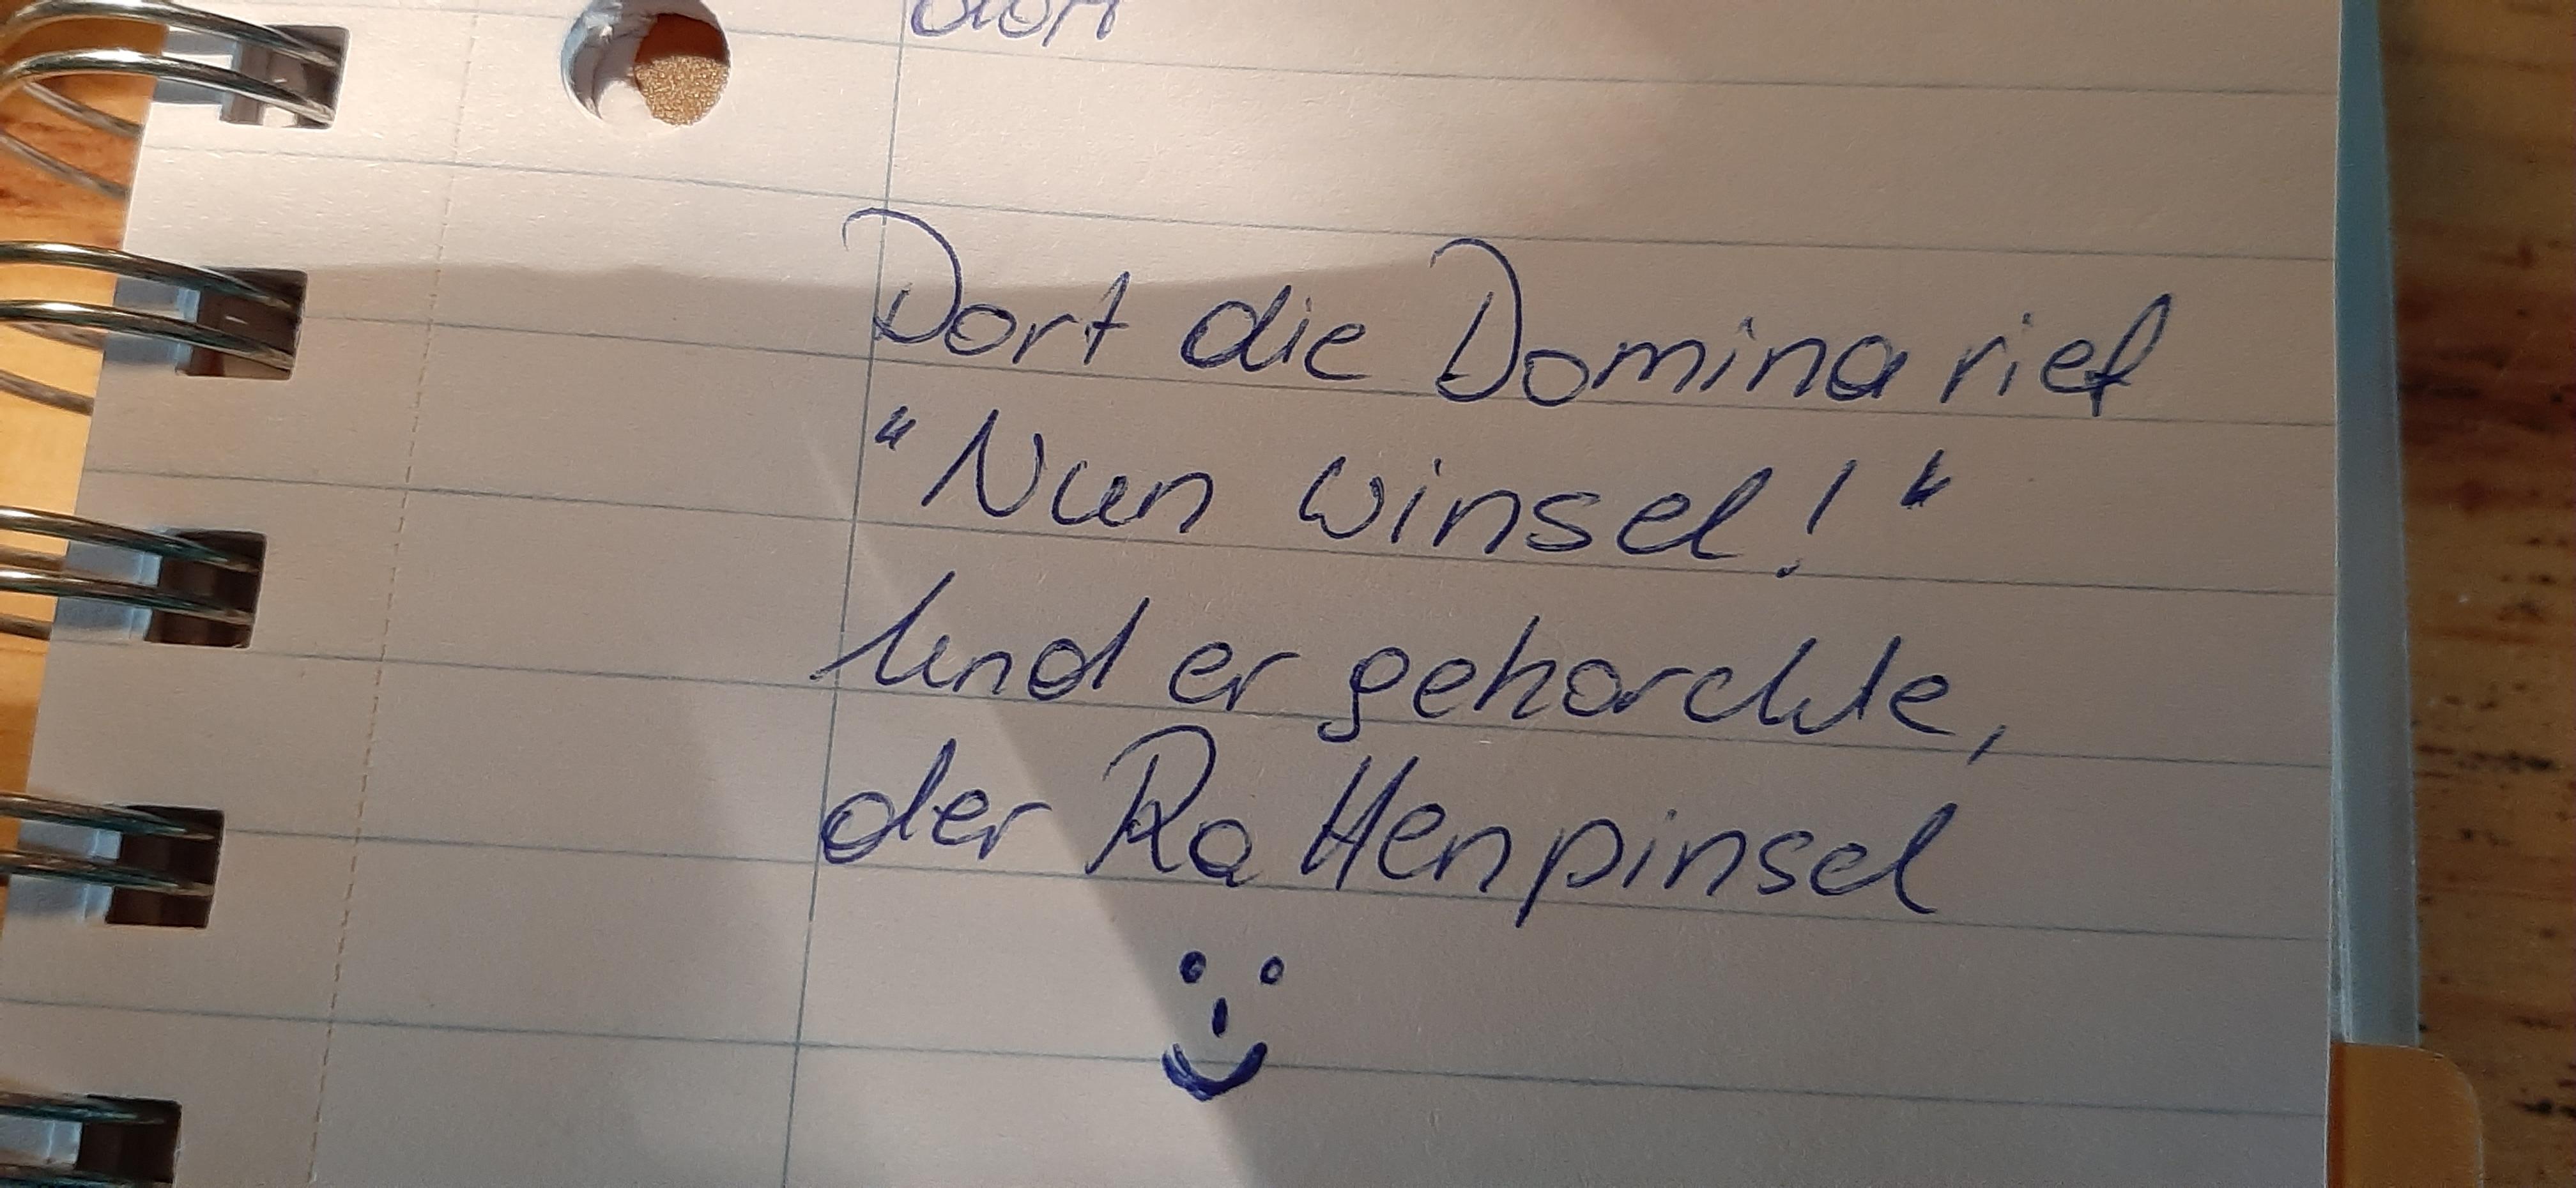 dort
Dort die Domina rief
"Nun winsel!"
Und er gehorchte,
der Rattenpinsel